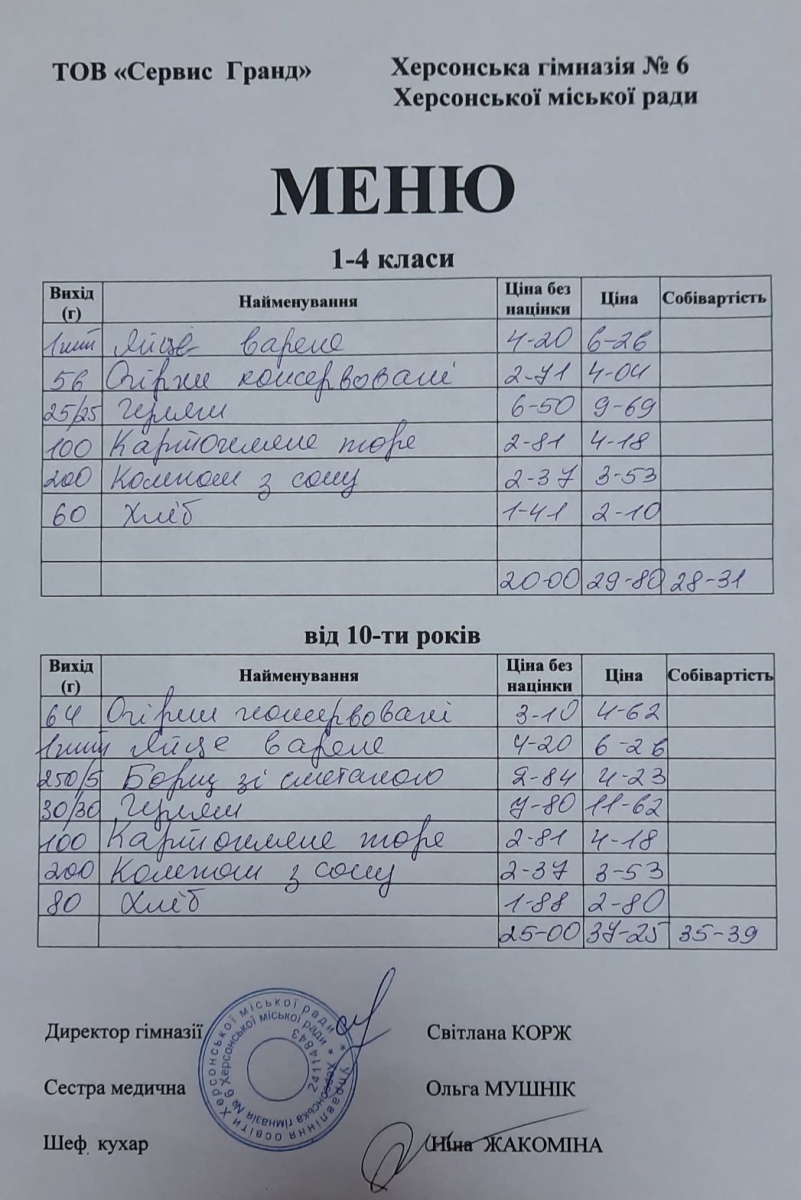 ТОВ «Сервис Гранд»
Херсонська гімназія № 6
Херсонської міської ради
МЕНЮ
1-4 класи
Вихід (г) Найменування Ціна без націнки Ціна Собівартість
1шт Яйце варене 4-20 6-26
56 Огірки консервовані 2-71 4-04
25/25 Гуляш 6-50 9-69
100 Картопляне пюре 2-81 4-18
200 Компот з соку 2-37 3-53
60 Хліб 1-41 2-10
20-00 29-80 28-31
від 10-ти років
Вихід (г) Найменування Ціна без націнки Ціна Собівартість
64 Огірки консервовані 3-10 4-62
1шт Яйце варене 4-20 6-26
250/5 Борщ зі сметаною 2-84 4-23
30/30 Гуляш 7-80 11-62
100 Картопляне пюре 2-81 4-18
200 Компот з соку 2-37 3-53
80 Хліб 1-88 2-80
25-00 37-25 35-39
Директор гімназії Світлана КОРЖ
Сестра медична Ольга МУШНІК
Шеф. кухар Ніна ЖАКОМІНА
Управління освіти Херсонської міської ради *
Херсонська гімназія № 6 Херсонської міської ради *
24114843